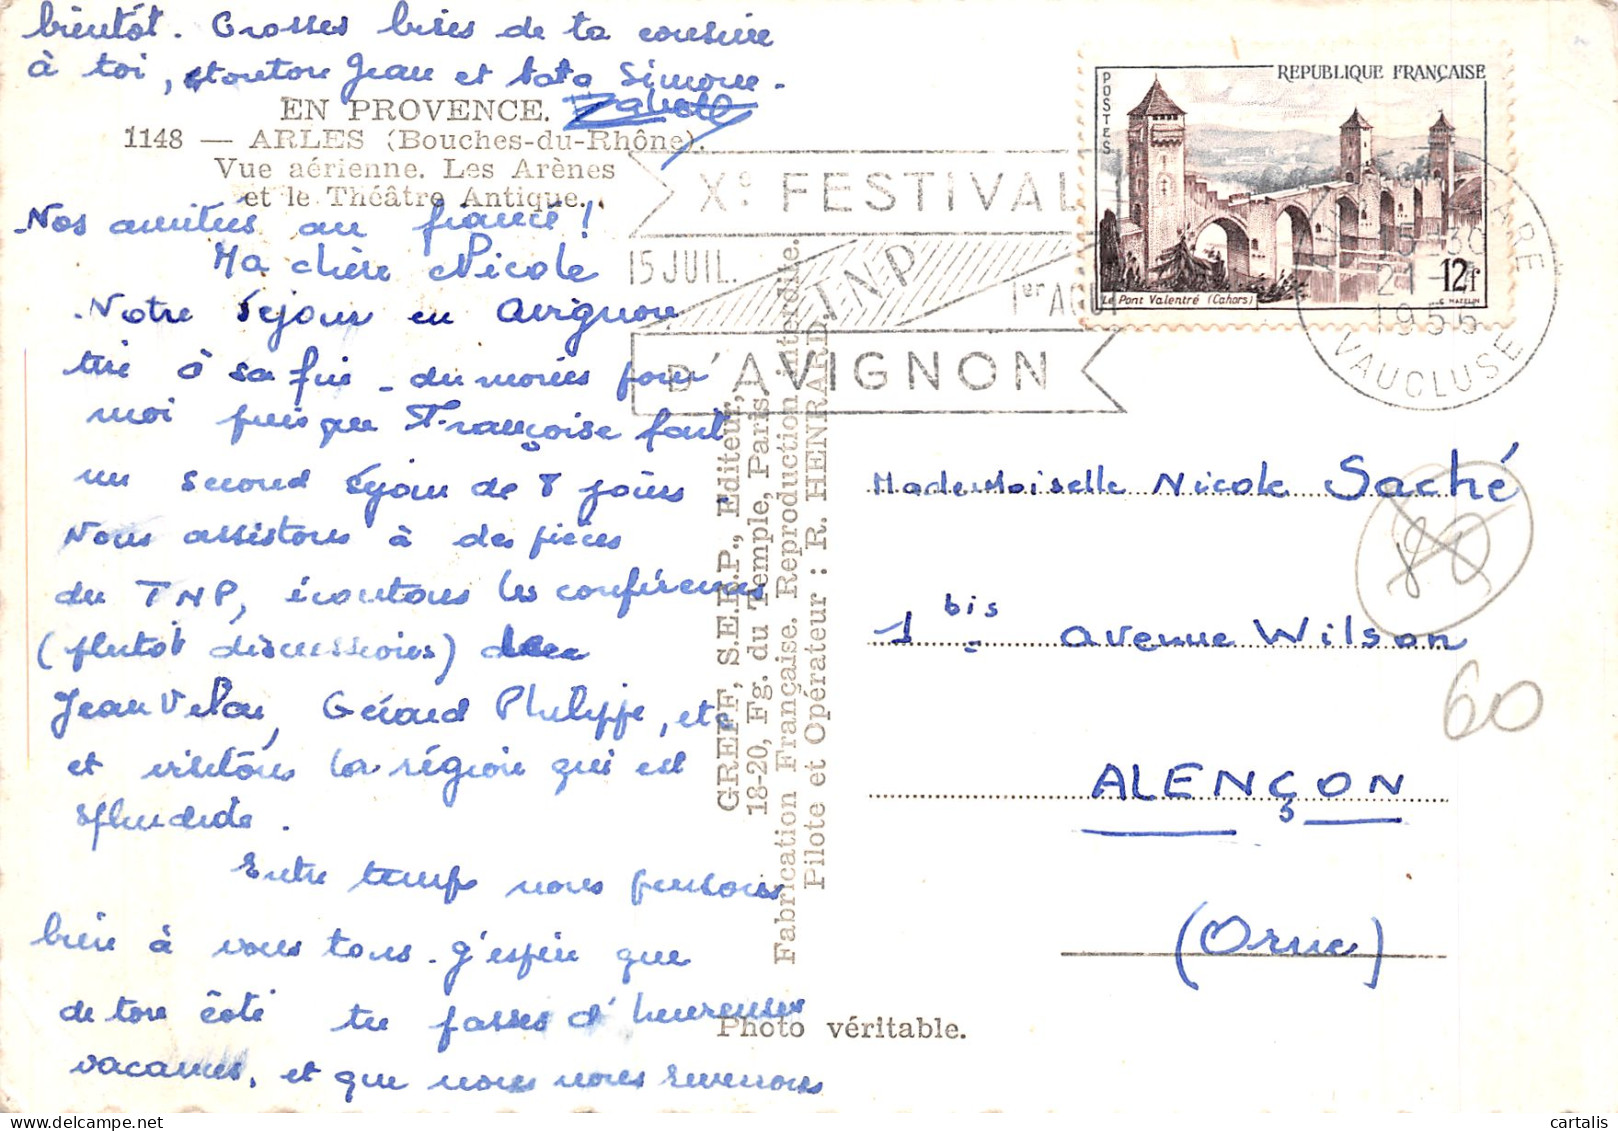 bientôt. Grosses bises de ta cousine
à toi, et tonton Jean et tata Simone.
EN PROVENCE.
1148 — ARLES (Bouches-du-Rhône).
Vue aérienne. Les Arènes
et le Théâtre Antique.
Nos amitiés au fiancé !
Ma chère Nicole
Notre séjour en Avignon
tire à sa fin - du moins pour
moi puisque Françoise fait
un second séjour de 8 jours
Nous assistons à des pièces
du TNP, écoutons les conférences
(plutôt discussions) de
Jean Vilar, Gérard Philippe, etc
et visitons la région qui est
splendide.
Entre temps nous pensons
bien à vous tous. J'espère que
de ton côté tu passes d'heureuses
vacances, et que nous nous reverrons
GREFF, S.E.R.P., Editeur,
18-20, Fg. du Temple, Paris.
Fabrication Française. Reproduction interdite.
Pilote et Opérateur : R. HENRARD
Photo véritable.
Xe FESTIVAL
15 JUIL. TNP 1er AOUT
D'AVIGNON
POSTES
REPUBLIQUE FRANÇAISE
Le Pont Valentré (Cahors)
12f
C. MAZELIN
GARE
15-30
21
1955
VAUCLUSE
Mademoiselle Nicole Saché
1 bis avenue Wilson
ALENÇON
(Orne)
80
60
cartalis